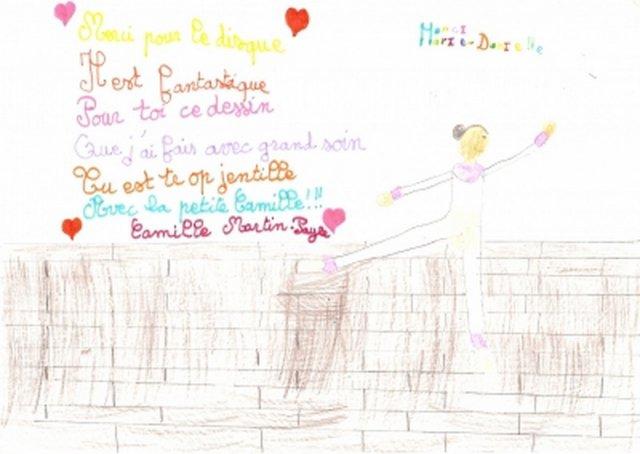 Merci pour le disque
Il est fantastique
Pour toi ce dessin
Que j'ai fais avec grand soin
Tu est te op jentille
Avec la petite Camille!!!
Camille Martin-Payre
Merci
Marie-Danielle